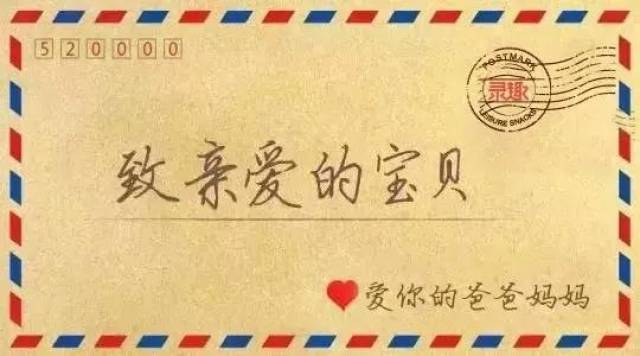 520000
POSTMARK
灵趣
LEISURE SNACKS
致亲爱的宝贝
爱你的爸爸妈妈